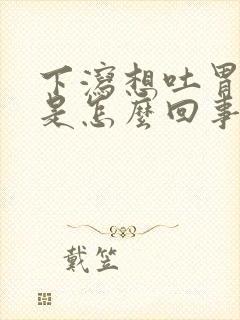 下瀉想吐胃
是怎麼回事
戴笠